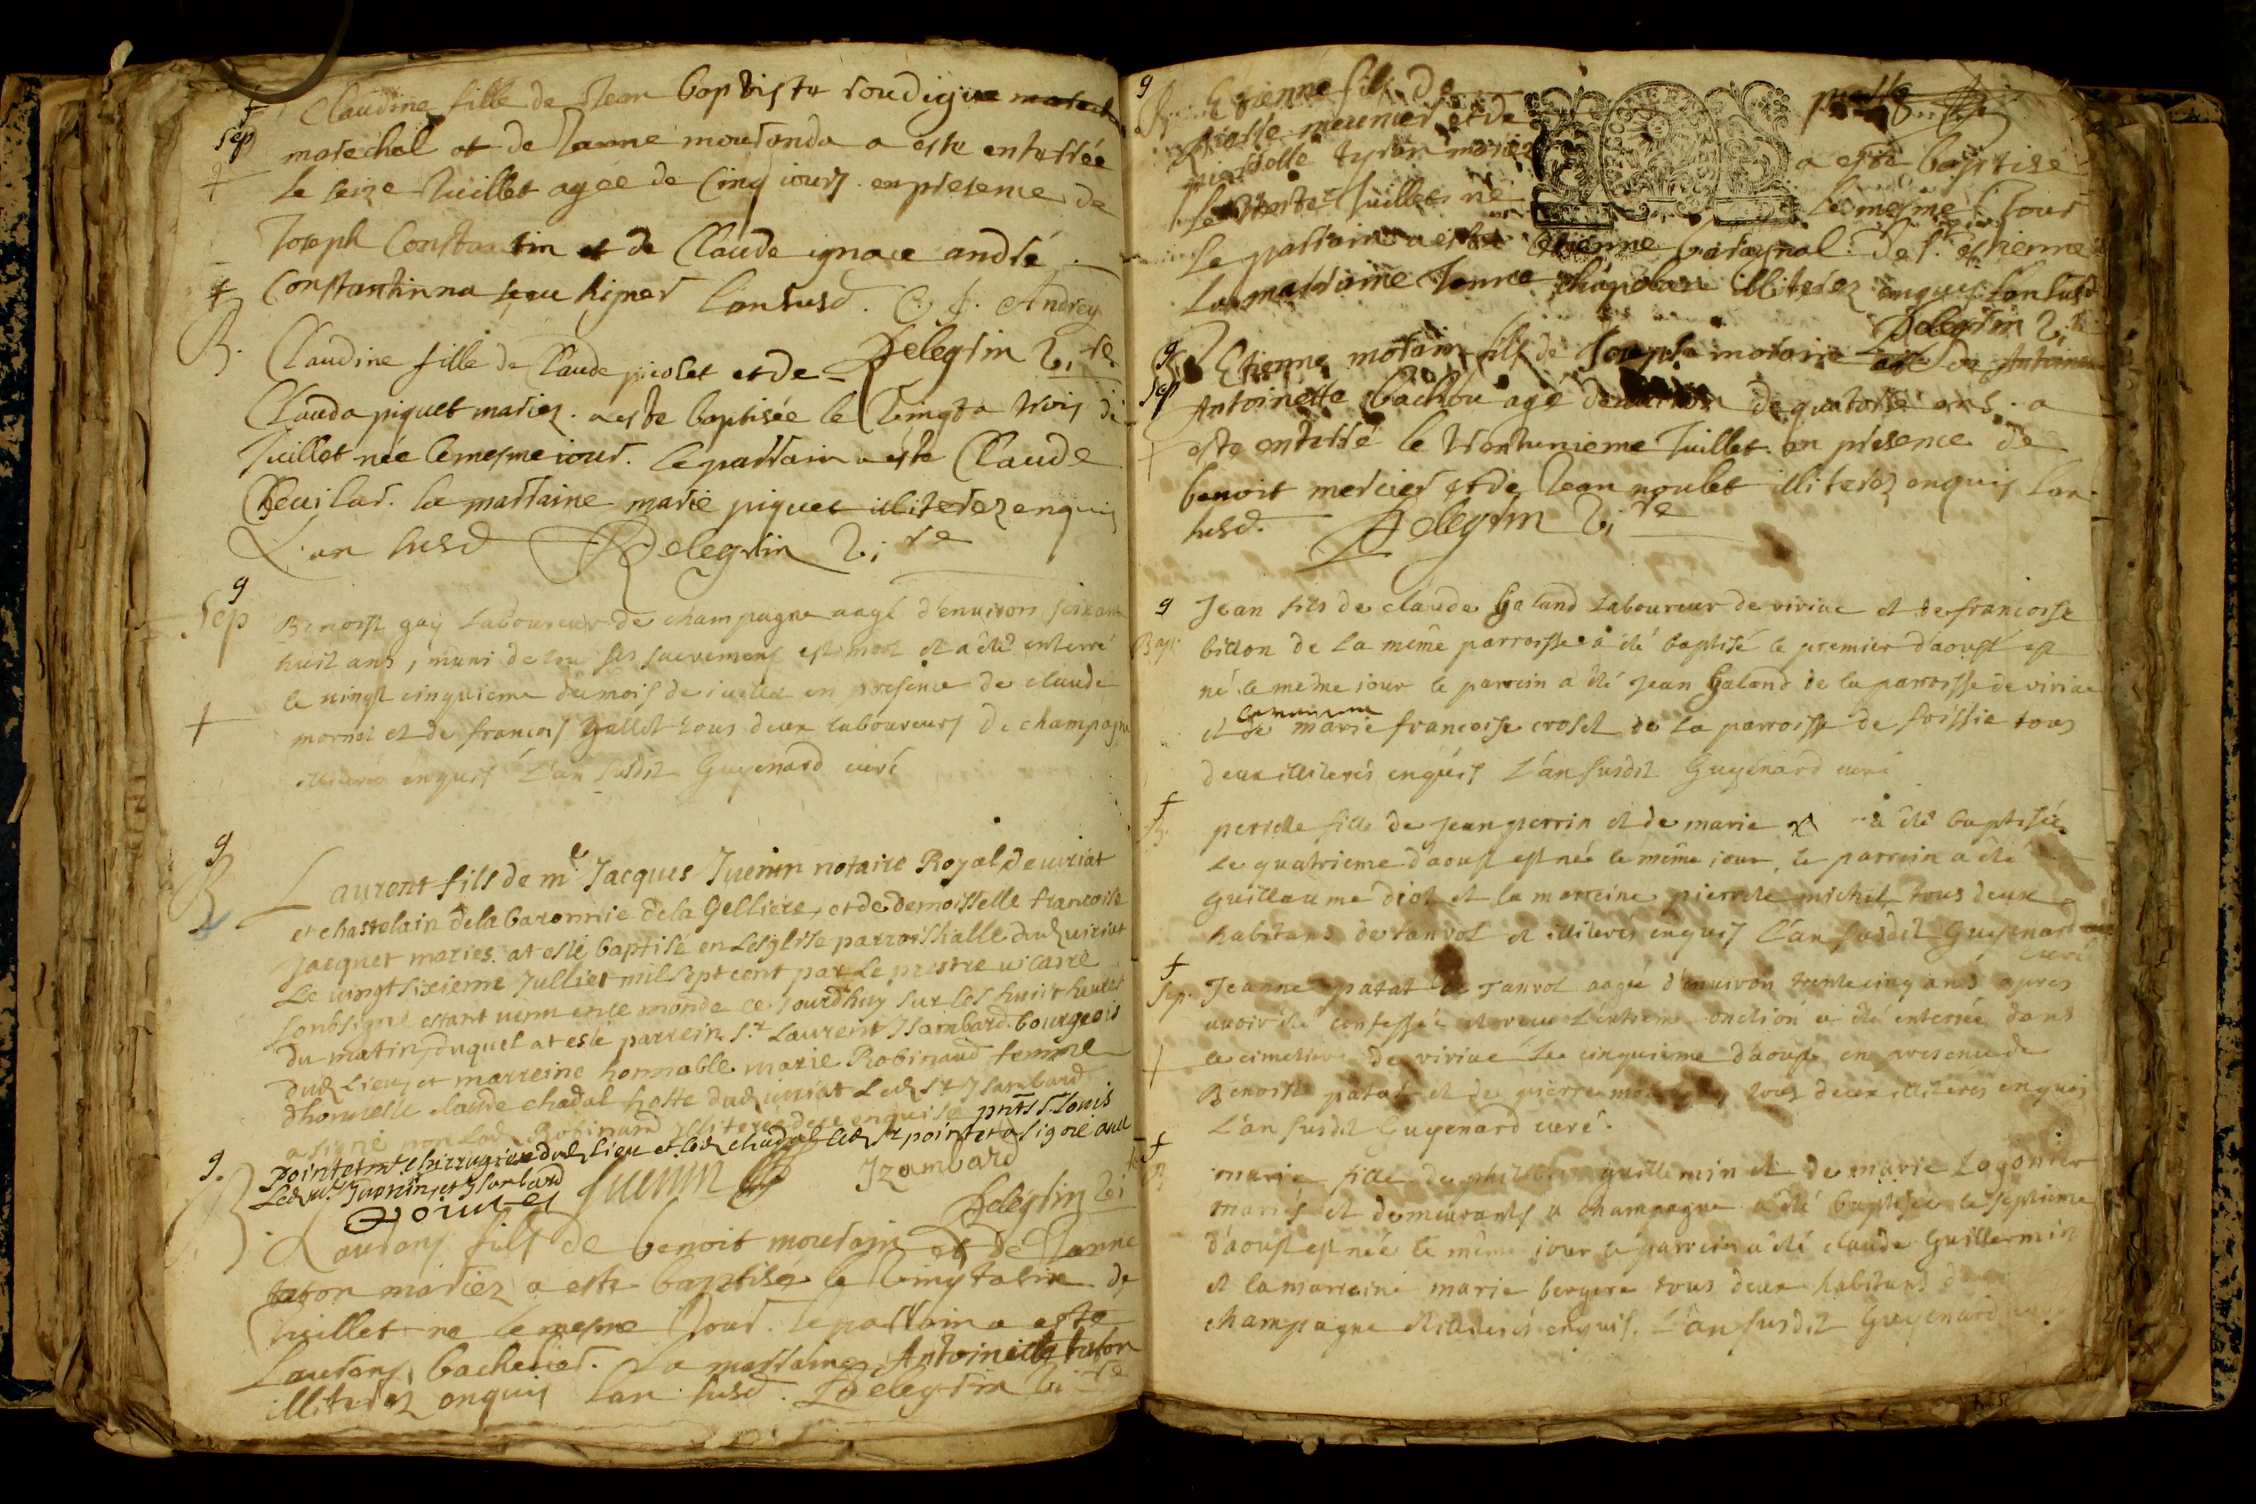 Claudine fille de Jean baptiste
Sep
marechal et de Janne mouronda a este enterrée
le seize Juillet agée de cinq jours en presence de
Joseph Constantin et de Claude ignace andre
Constantin na sceu signer lansusd. C. J. Andrey
B. Claudine fille de Claude picolet et de
Pelegrin vi re
Clauda piquet mariez a este baptisée le vingt a trois de
Juillet née le mesme iour. le parrain a este Claude
Cheuilar. la marraine marie piquet illiterez enquis
L'an susd Pelegrin vi re
g
Sep Benoist gay laboureur de champagne aagé d'enuiron
huit ans, muni de ses sacremens est mort et a été enterré
le vingt cinquieme du mois de iuillet en presence de claude
mornai et de francois gallet tous deux laboureurs de champagne
illiterés enquis L'an susdit Guyenard curé
g
B Laurent fils de me Jacques Juenin notaire Royal de uiriat
et chastelain de la baronnie de la Gelliere, et de demoiselle francoise
Jacquet maries. at esté baptise en Lesglise parroishialle dud uiriat
Le uingt sixieme Julliet mil sept cent par Le prestre uicaire
soubsigné estant uenu en ce monde ce Jourdhuy sur les huict heures
du matin, duquel at esté parrein sr. Laurent Isambard bourgeois
dud Lieu, et marreine honnable marie Robinaud femme
dhonneste claude chadal hoste dud uiriat Led sr Isambard
a signé non lad Robinard illiteré de ce enquise pnts sr. Louis
g. pointet mre chirurgien dud lieu et led chadal led sr pointet a signé auec
Led me Juenin, et Isambard
Juenin Izambard
Pointet
Pelegrin vi
B Laurens fils de benoit mourain et de Janne
tuton mariez a este baptisé le vingt de
Juillet ne le mesme Jour. le parrain a este
Laurens bachelier. La marraine Antoinette tuton
illiterez enquis lan susd. Pelegrin vi re
g
B Etienne fils de
meunier et de
mariez a esté baptisé
le Juillet né le mesme Jour
le parrain a este Etienne de st. etienne
La marraine Janne illiterez enquis lan susd
Pelegrin vi re
g
Sep Etienne morain fils de Joseph moraine
Antoinette bachou agé de quatorse ans. a
este enterré le trentunieme Juillet en presence de
benoit mercier et de Jean noulet illiterez enquis lan
susd. Pelegrin vi re
g Jean fils de claude Galand laboureur de viriac et de francoise
Bap. billon de la même parroisse a été baptisé le premier d'aoust est
né le même iour le parrein a été Jean Galand de la parroisse de viriac
et marie francoise croset de la parroisse de foissie tous
deux illiterés enquis L'an susdit Guyenard curé
B. perrette fille de jean perrin et de marie a été baptisée
le quatrieme d'aoust est née le même iour, le parrein a été
guillaume diot et la marreine pierrette michel tous deux
habitans de tanvol et illiterés enquis L'an susdit Guyenard
curé
Sep. Jeanne patat de tanvol aagée d'enuiron trente cinq ans apres
auoir été confessée et receu l'extreme onction a été enterrée dans
le cimetiere de viriac le cinquieme d'aoust en presence de
Benoist patat et de pierre tous deux illiterés enquis
L'an susdit Guyenard curé.
B marie fille de philibert guillemin et de marie
mariés et demeurants a champagne a été baptisée le septieme
d'aoust est née le même jour le parrein a été claude Guillermin
et la marreine marie bergere tous deux habitans de
champagne et illiterés enquis. L'an susdit Guyenard curé